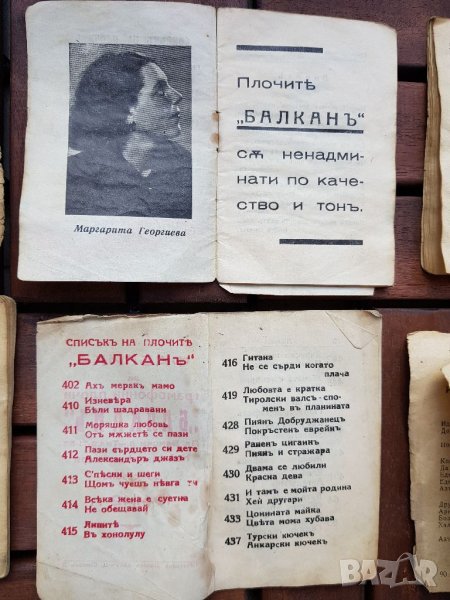 Маргарита Георгиева
Плочитѣ
„БАЛКАНЪ“
сѫ ненадми-
нати по каче-
ство и тонъ.
СПИСЪКЪ НА ПЛОЧИТѢ
„БАЛКАНЪ“
402 Ахъ меракъ мамо
410 Изневѣра
Бѣли шадравани
411 Моряшка любовь
Отъ мѫжетѣ се пази
412 Пази сърдцето си дете
Александъръ джазъ
413 С'пѣсни и шеги
Щомъ чуешъ нѣвга ти
414 Всѣка жена е суетна
Не обещавай
415
Въ хонолулу
416 Гитана
Не се сърди когато
плача
419 Любовта е кратка
Тиролски валсъ-спо-
менъ въ планината
428 Пиянъ Добруджанецъ
Покръстенъ евреинъ
429 Раненъ циганинъ
Пиянъ и стражара
430 Двама се любили
Красна дева
431 И тамъ е мойта родина
Хей другари
433 Цонината майка
Цвѣта мома хубава
437 Турски кючекъ
Анкарски кючекъ
BAZAR